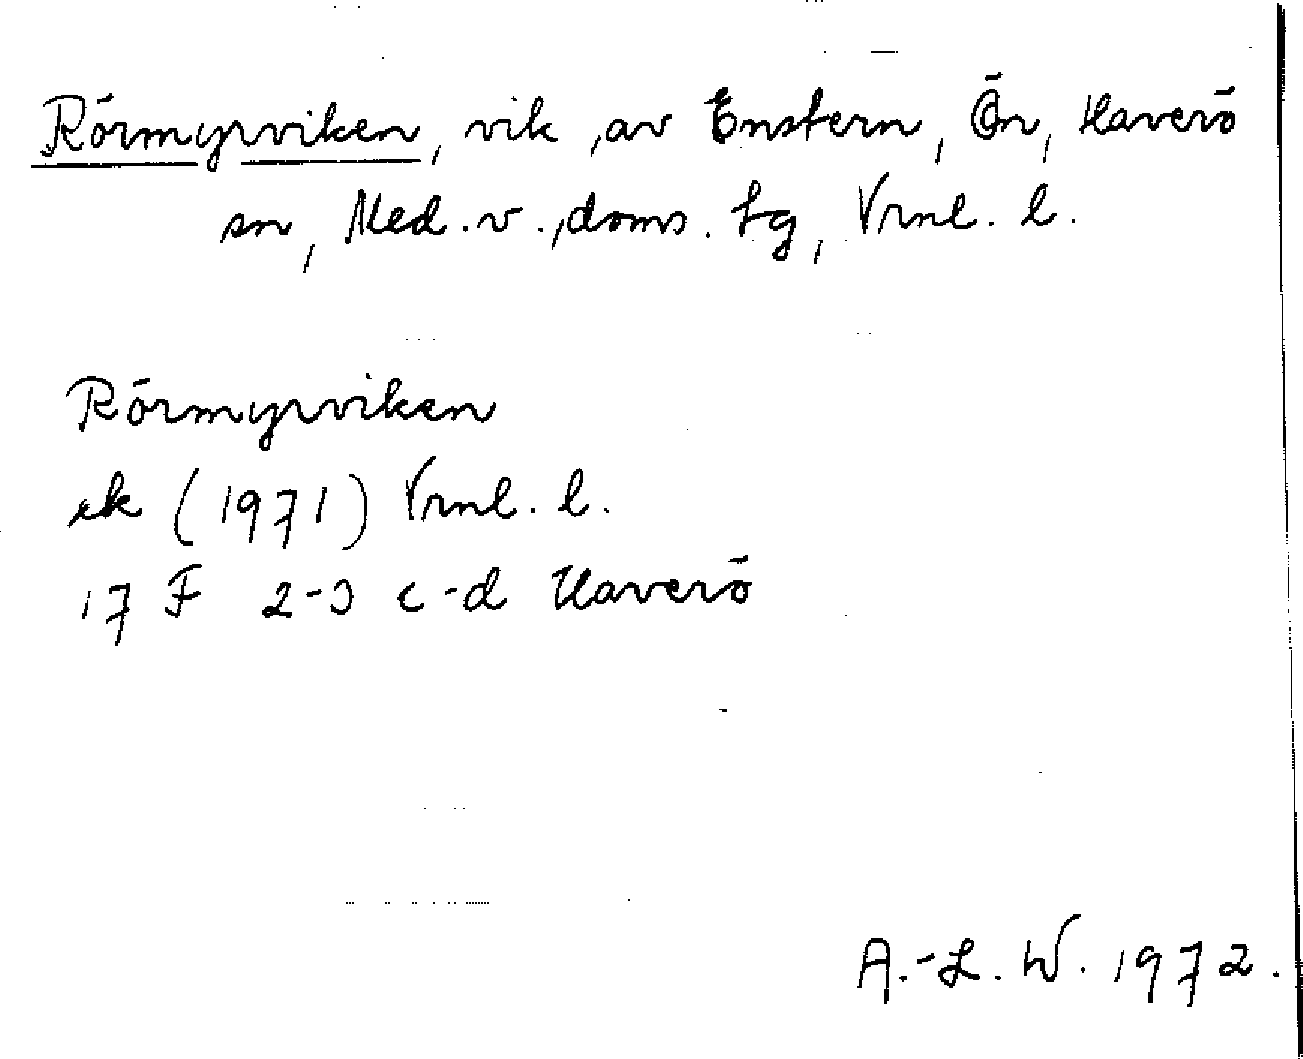 Rörmyrviken, vik, av Enstern, Ön, Haverö
sn, Med. v., doms. tg, Vrnl. l.
Rörmyrviken
ek (1971) Vrnl. l.
17 F 2-3 c-d Haverö
A.-L. W. 1972.